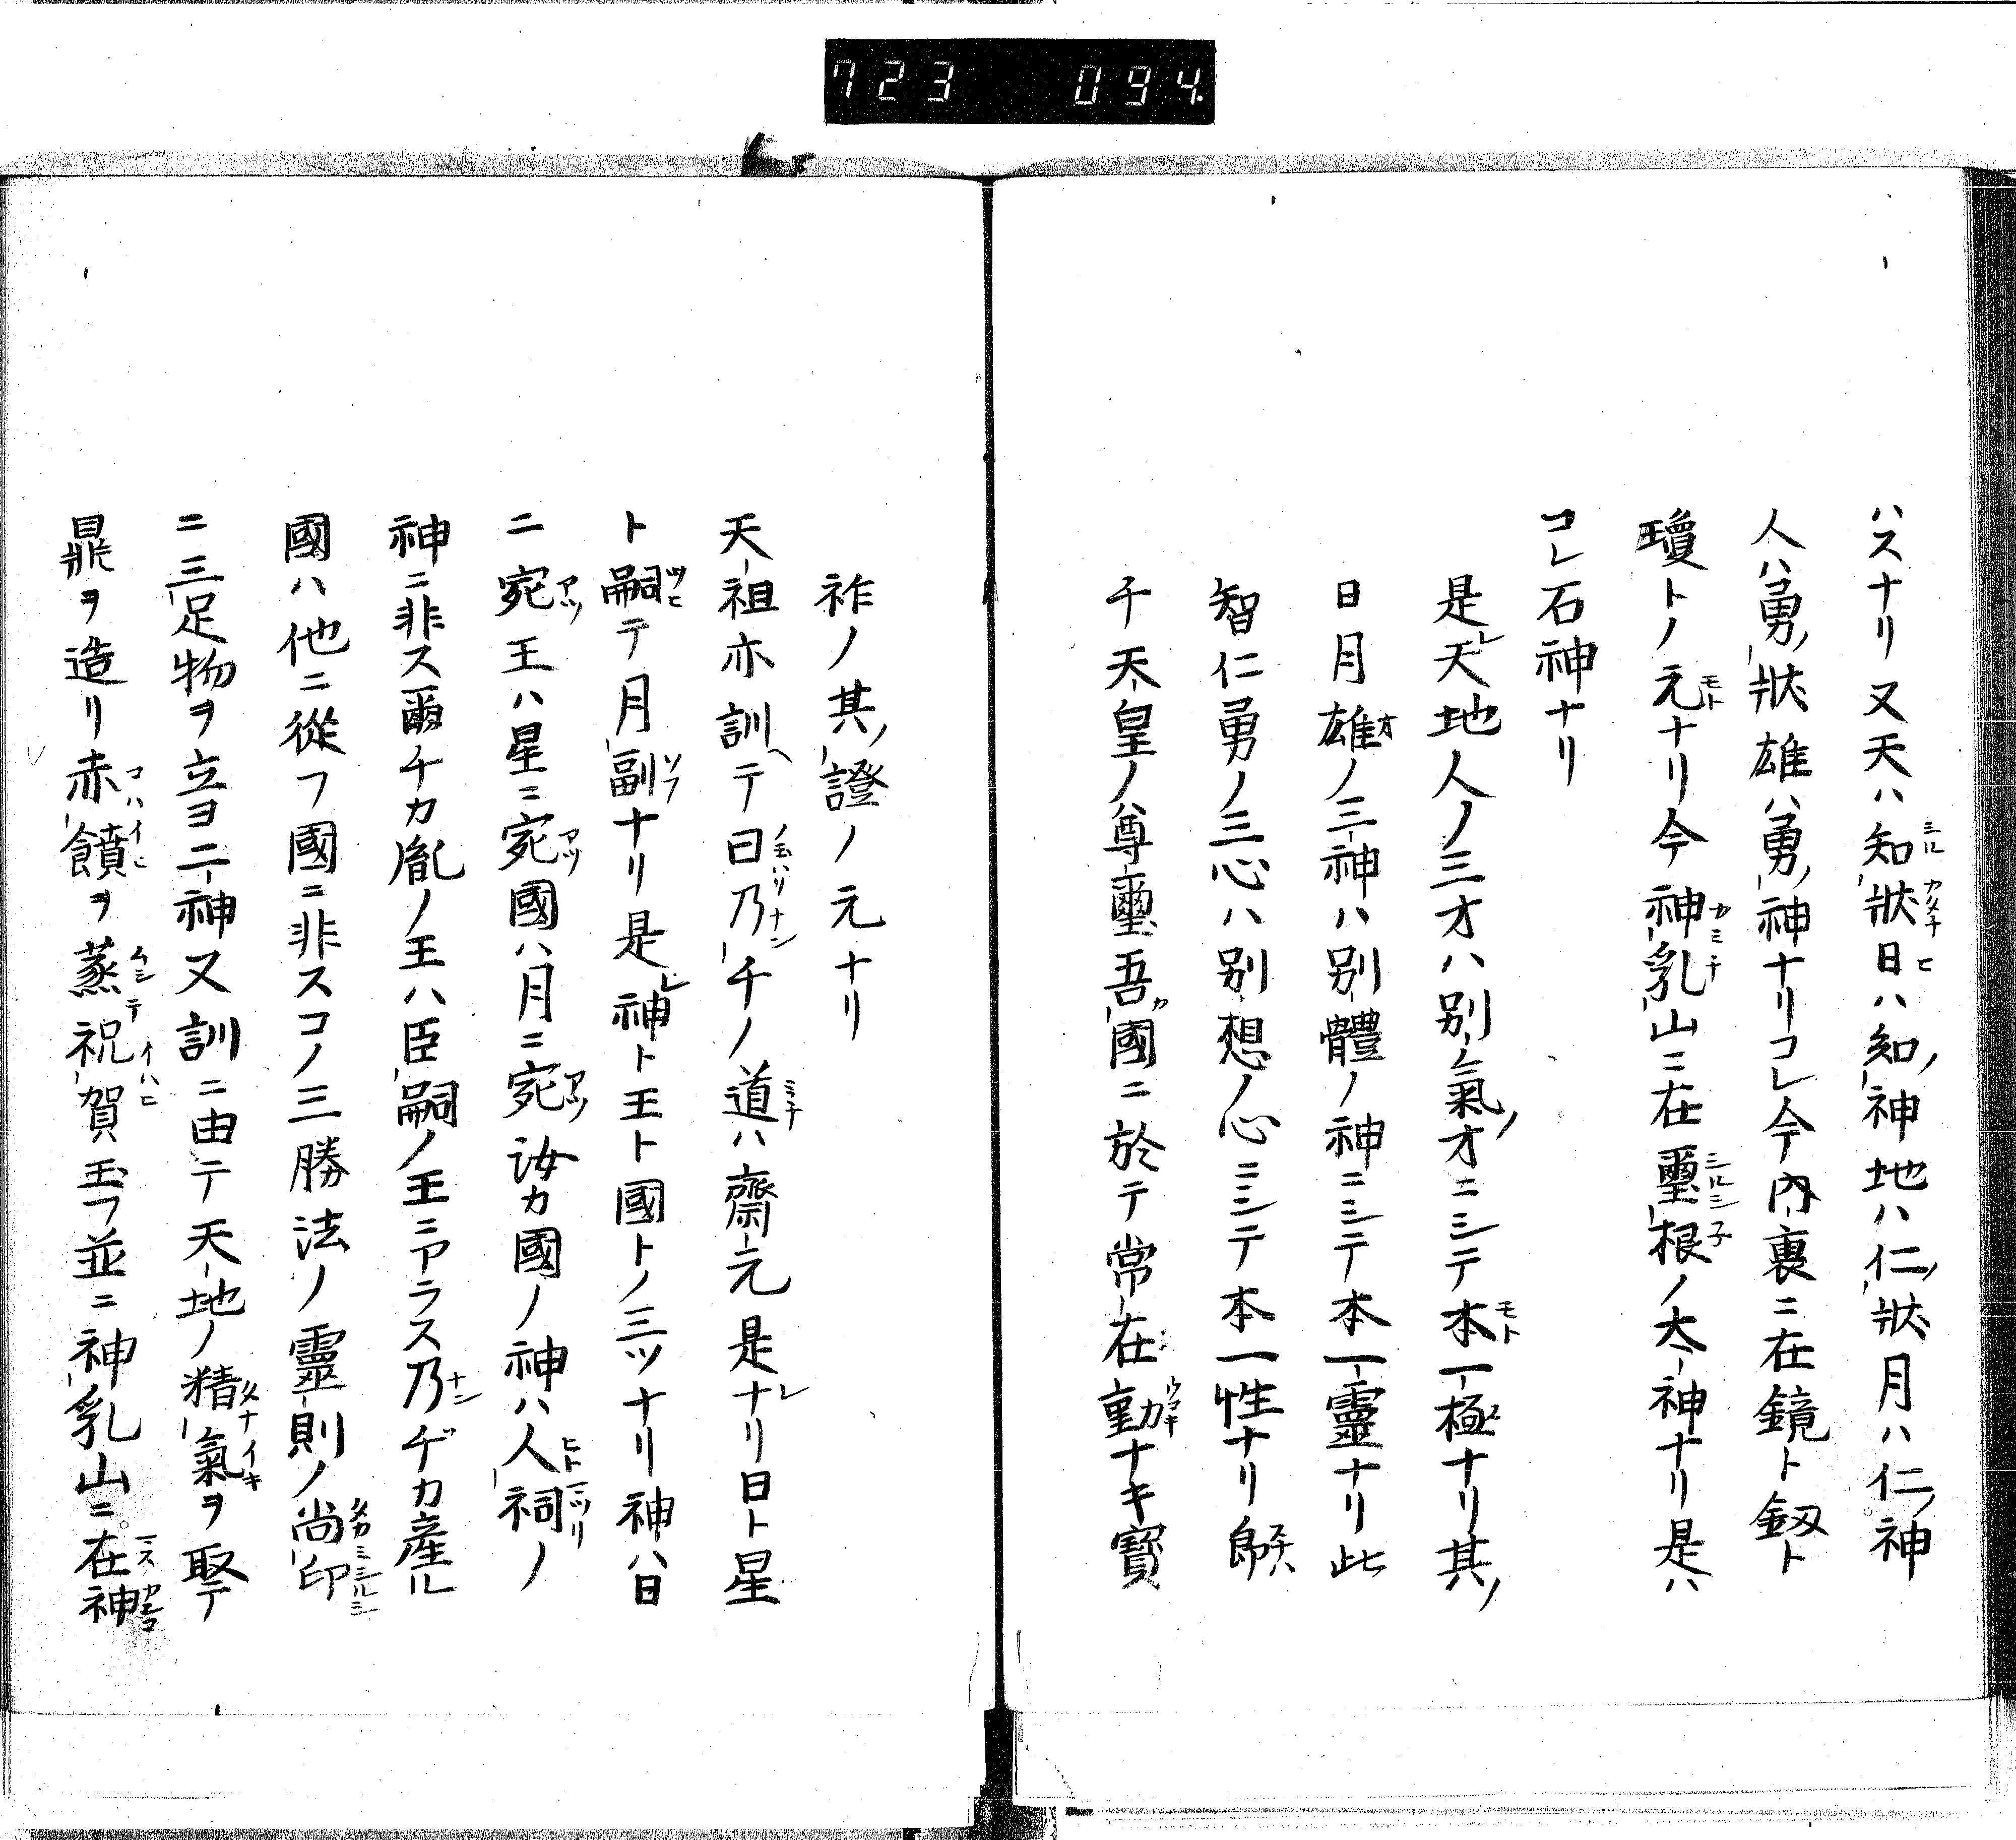 723 094
ハスナリ又天ハ知狀日ハ知ノ神地ハ仁ノ狀月ハ仁ノ神
人ハ勇ノ狀雄ハ勇ノ神ナリコレ今內裏ニ在鏡ト釼ト
瓊トノ元ナリ今神乳山ニ在璽根ノ太神ナリ是ハ
コレ石神ナリ
是レ天地人ノ三才ハ別ノ氣ノオニシテ本一極ナリ其ノ
日月雄ノ三神ハ別體ノ神ニシテ本一靈ナリ此
智仁勇ノ三心ハ別想ノ心ニシテ本一性ナリ
千天皇ノ尊璽吾カ國ニ於テ常在動ナキ寶
祚ノ其ノ證ノ元ナリ
天祖亦訓ヘテ曰乃チノ道ハ齋元是レナリ日ト星
ト嗣テ月副ナリ是レ神ト王ト國トノ三ツナリ神ハ日
ニ宛王ハ星ニ宛國ハ月ニ宛汝カ國ノ神ハ人祠ノ
神ニ非ス爾チカ胤ノ王ハ臣嗣ノ王ニアラス乃ヂカ産ル
國ハ他ニ從フ國ニ非スコノ三勝法ノ靈則ノ尚印
ニ三足物ヲ立ヨ二神又訓ニ由テ天地ノ精氣ヲ聚テ
鼎ヲ造リ赤饙ヲ蒸祝賀玉フ並ニ神乳山ニ在神